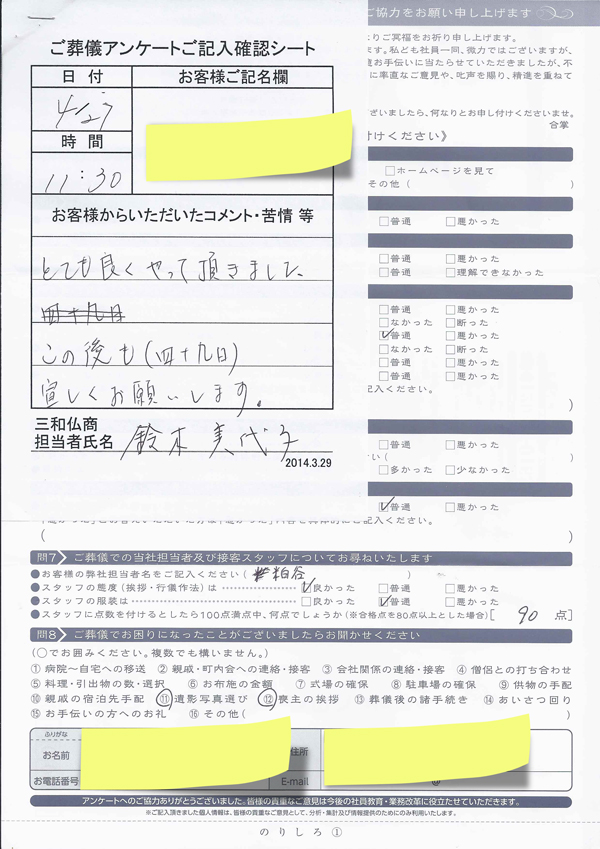 ご協力をお願い申し上げます
ご葬儀アンケートご記入確認シート
日付
お客様ご記名欄
4/27
時間
11:30
お客様からいただいたコメント・苦情 等
とても良くやって頂きました
四十九日
この後も(四十九日)
宜しくお願いします。
三和仏商
担当者氏名 鈴木美代子
2014.3.29
りご冥福をお祈り申し上げます。
ます。私ども社員一同、微力ではございますが、
お手伝いに当たらせていただきましたが、不
に率直なご意見や、叱声を賜り、精進を重ねて
ざいましたら、何なりとお申し付けくださいませ。
合掌
付けください》
□ホームページを見て
その他( )
□普通 □悪かった
□普通 □悪かった
□普通 □理解できなかった
□普通 □悪かった
□なかった □断った
☑普通 □悪かった
□なかった □断った
□普通 □悪かった
□普通 □悪かった
記入ください。
)
□普通 □悪かった
い( )
□多かった □少なかった
☑普通 □悪かった
記入ください。
( )
問7 ご葬儀での当社担当者及び接客スタッフについてお尋ねいたします
●お客様の弊社担当者名をご記入ください( 粕谷 )
●スタッフの態度(挨拶・行儀作法)は ☑良かった □普通 □悪かった
●スタッフの服装は □良かった ☑普通 □悪かった
●スタッフに点数を付けるとしたら100点満点中、何点でしょうか(※合格点を80点以上とした場合)[ 90 点]
問8 ご葬儀でお困りになったことがございましたらお聞かせください
(○でお囲みください。複数でも構いません。)
①病院〜自宅への移送 ②親戚・町内会への連絡・接客 ③会社関係の連絡・接客 ④僧侶との打ち合わせ
⑤料理・引出物の数・選択 ⑥お布施の金額 ⑦式場の確保 ⑧駐車場の確保 ⑨供物の手配
⑩親戚の宿泊先手配 ⑪遺影写真選び ⑫喪主の挨拶 ⑬葬儀後の諸手続き ⑭あいさつ回り
⑮お手伝いの方へのお礼 ⑯その他( )
ふりがな
お名前
住所
お電話番号
E-mail
アンケートへのご協力ありがとうございました。皆様の貴重なご意見は今後の社員教育・業務改革に役立たせていただきます。
※ご記入頂きました個人情報は、皆様の貴重なご意見として、分析・集計及び情報提供のためにのみ利用いたします。
のりしろ①